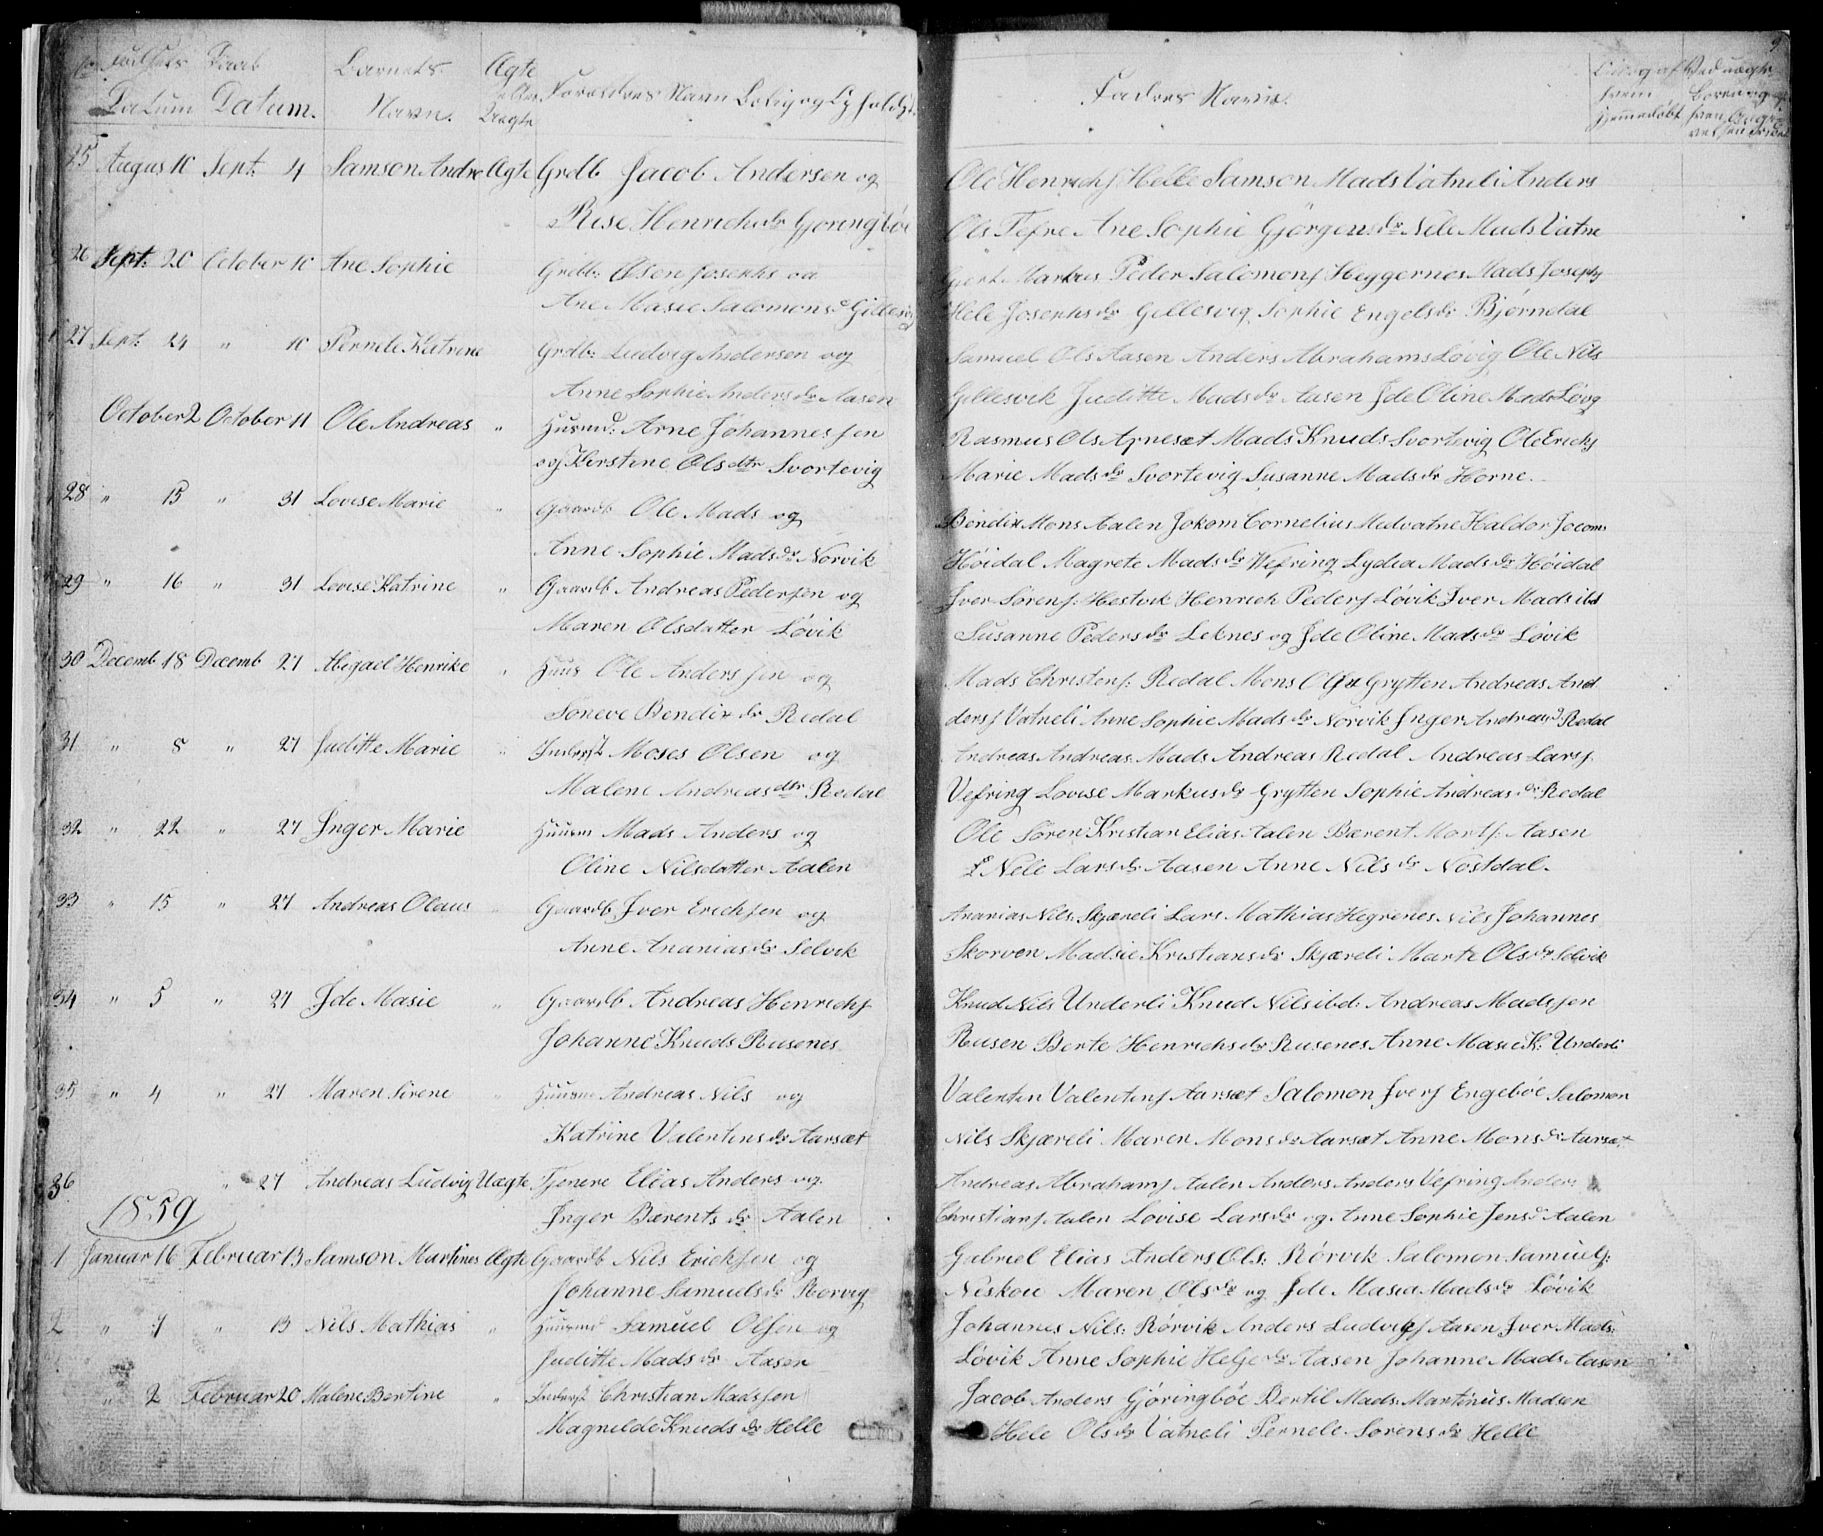 Fødsels Daab Barnets Ægte Forældres Navn Bolig og
Datum Datum. Navn. Uægte
Fadres Navne.
hvem
hjemmedøbt
25 Augus 10 Sept: 4 Samson Andre Ægte Grdb Jacob Andersen og
Rise Henrichsdr Gjøringbøe
Ole Henrichs Helle Samson Mads Vatneli Anders
Ols Tefre Ane Sophie Gjørgensdr Nele Mads Vatne
26 Sept: 20 October 10 Ane Sophie Grdb: Olsen Josephs og
Ane Masie Salomonsd Gillesvig
Gjert Markus Peder Salomons Heggernes Mads Josephs
Hele Josephsdr Gillesvig Sophie Engelsdr Bjørndal
27 Sept: 24 " 10 Pernele Katrine Grdb: Ludvig Andersen og
Anne Sophie Andersdr Aasen
Samuel Ols Aasen Anders Abrahams Løvig Ole Nils
Gillesvik Juditte Madsdr Aasen Jde Oline Mads Løvg
October 2 October 11 Ole Andreas " Huusmd: Arne Johannessen
og Kirstine Olsdtr Svortevig
Rasmus Ols Arnesæt Mads Knuds Svortevig Ole Erichs
Marie Madsdr Svortevig Susanne Madsdr Horne.
28 " 15 " 31 Lovise Marie Gaardb Ole Mads og
Anne Sophie Madsdr Norvik
Bendix Mons Aalen Jokom Cornelius Medvatne Haldor Jocom
Høidal Magrete Madsdr Wefring Lydia Madsdr Høidal
29 " 16 " 31 Lovise Katrine " Gaardb Andreas Pedersen og
Maren Olsdatter Løvik
Jver Sørens Hestvik Henrich Peders Løvik Jver Mads ibd
Susanne Pedersdr Leknes og Jde Oline Madsdr Løvik
30 Decemb 18 Decemb 27 Abigael Henrike " Huus Ole Anderssen og
Søneve Bendixdr Redal
Mads Christens: Redal Mons Ols Grytten Andreas And
ders Vatneli Anne Sophie Madsdr Norvik Jnger Andreasd Redal
31 " 8 " 27 Juditte Marie " Jnderst Moses Olsen og
Malene Andreasdtr Redal
Andreas Andreas Mads Andreas Redal Andreas Lars
Vefring Lovise Markusdr Grytten Sophie Andreasdr Redal
32 " 22 " 27 Jnger Marie Huusm Mads Anders og
Oline Nilsdatter Aalen
Ole Søren Kristian Elias Aalen Bærent Morts: Aasen
Nele Larsdr Aasen Anne Nilsdr Nøstdal.
33 " 15 " 27 Andreas Olaus Gaardb Jver Erichsen og
Anne Ananiasdr Selvik
Ananias Nils Skjæreli Lars Mathias Hegrenes Nils Johannes
Skorven Madsie Kristiansdr Skjæreli Marte Olsdr Selvik
34 " 5 " 27 Jde Masie " Gaardb Andreas Henrichs
Johanne Knuds Rusenes
Knud Nils Underli Knud Nils ibd: Andreas Madssen
Rusen Berte Henrichsdr Rusenes Anne Masie K: Underli
35 " 4 " 27 Maren Sirene Huusm Andreas Nils og
Katrine Valentinsdr Aarsæt
Valentin Valentins Aarsæt Salomon Jvers Engebøe Salomon
Nils Skjæreli Maren Monsdr Aarsæt Anne Monsdr Aarsæt
36 " 27 Andreas Ludvig Uægte Tjenere Elias Anders og
Jnger Bærentsdr Aalen
Andreas Abrahams Aalen Anders Anders Vefring Anders
Christians Aalen Lovise Larsdr og Anne Sophie Jensd Aalen
1859
1 Januar 16 Februar 13 Samson Martines Ægte Gaardb Nils Erichsen og
Johanne Samuelsdr Rørvig
Gabriel Elias Anders Ols: Rørvik Salomon Samuels:
Neskoie Maren Olsdr og Jde Masia Madsdr Løvik
2 " 7 " 13 Nils Mathias " Huusmd Samuel Olsen og
Juditte Madsdr Aasen
Johannes Nils: Rørvik Anders Ludvigs Aasen Jver Mads:
Løvik Anne Sophie Heljedr Aasen Johanne Mads Aasen
" 2 Februar 20 Malene Bertine " Jnderst Christian Madssen
Magnilde Knudsdr Helle
Jacob Anders Gjøringbøe Bertil Mads Martinus Madsen
Hele Olsdr Vatneli Pernele Sørensdr Helle